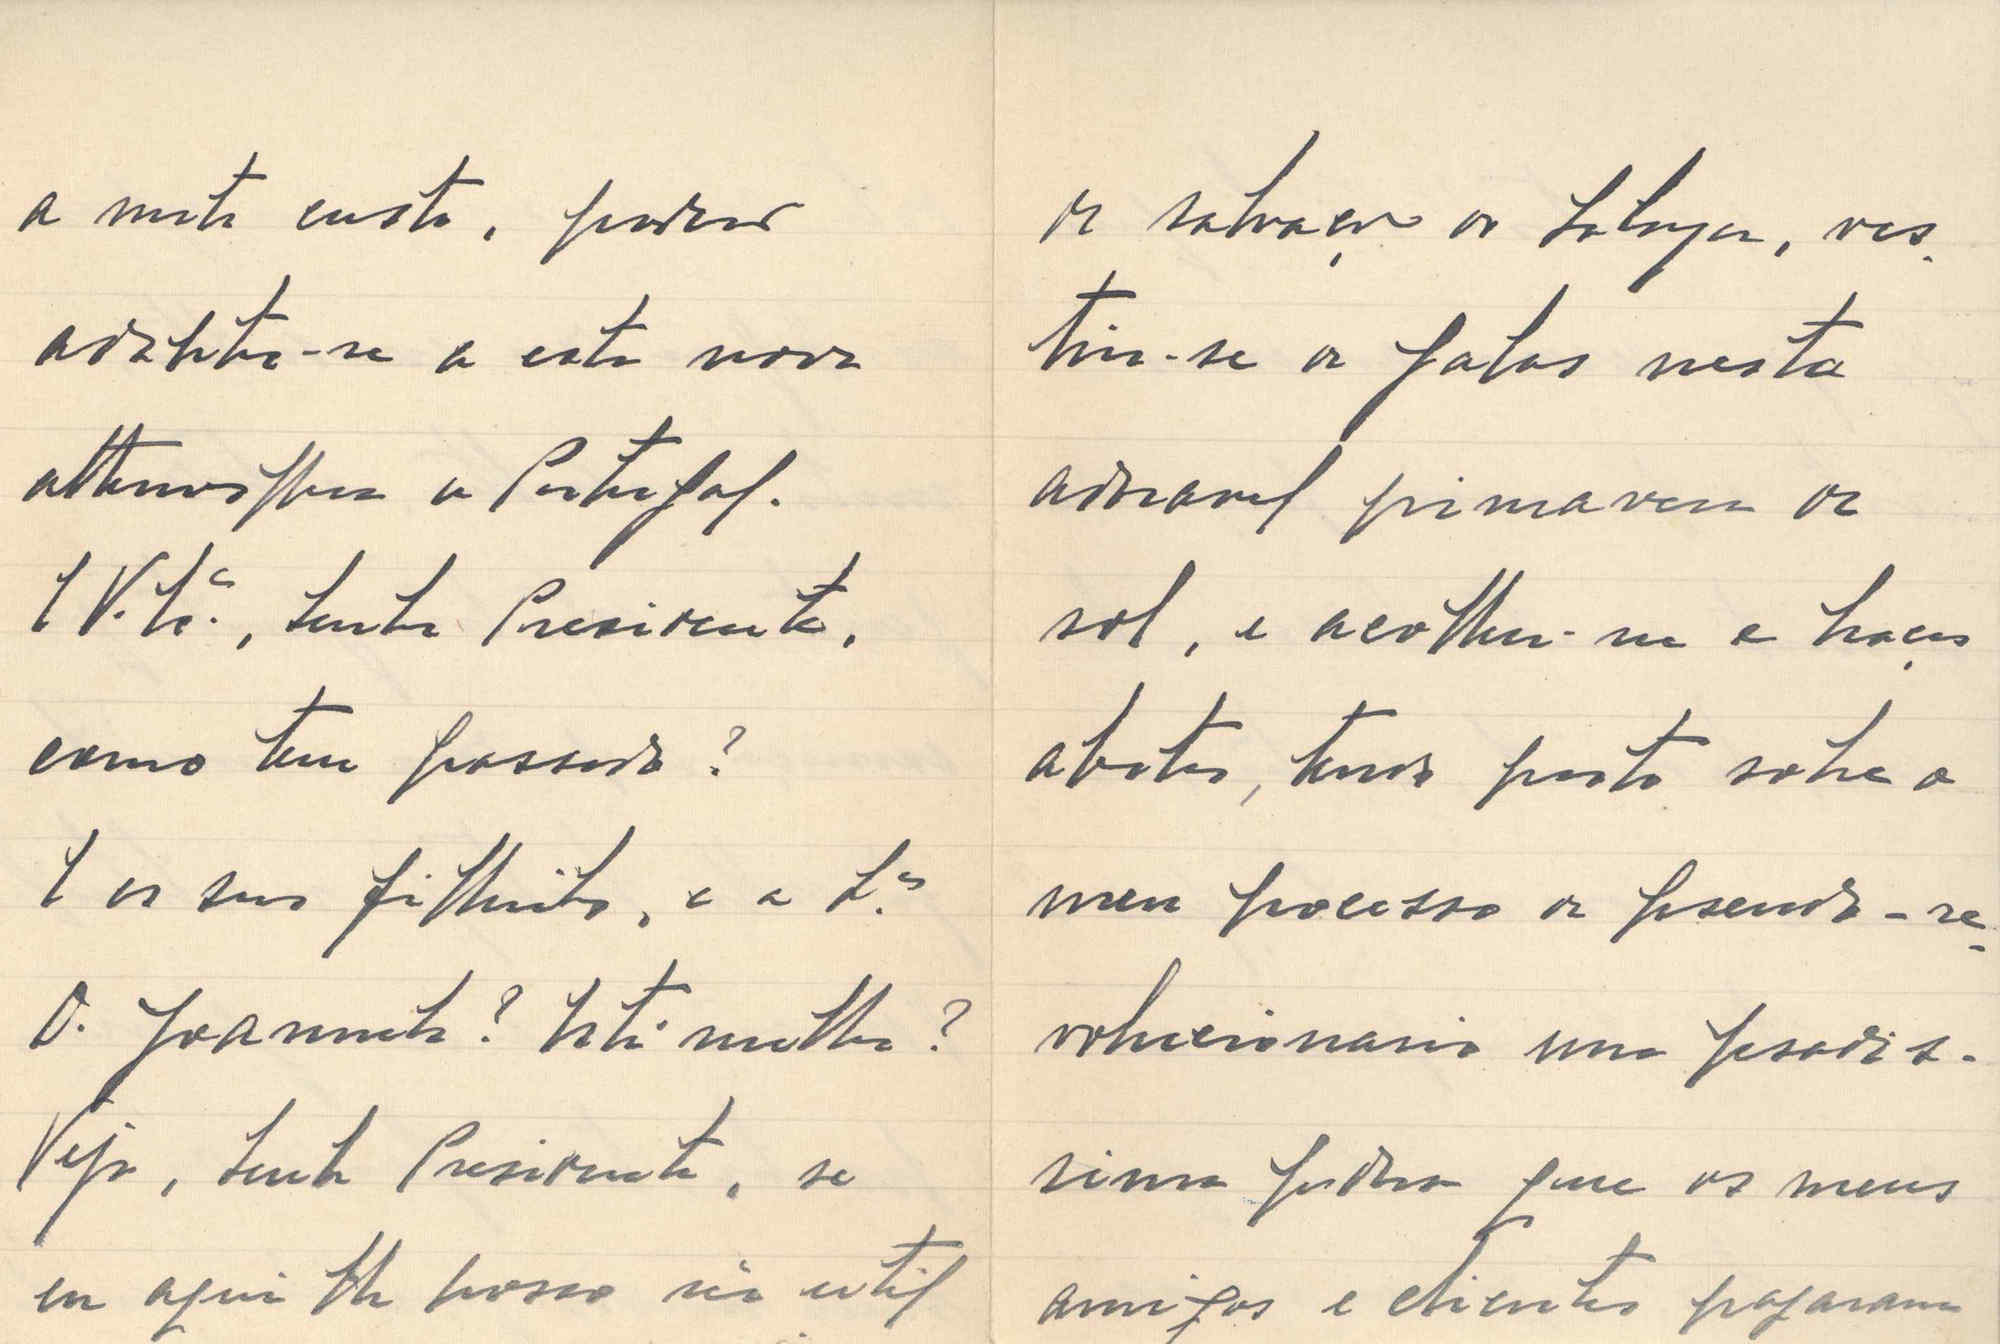 a muito custo, poder
adaptar-se a esta nova
athmosphera de Portugal.
E V. Ex.ª, Senhor Presidente,
como tem passado?
E os seus filhinhos, e a S.ª
D. Joanninha? Está melhor?
Veja, Senhor Presidente, se
eu aqui lhe posso ser util
de salvação de Lisboa, ves-
tiu-se de galas nesta
adoravel primavera de
sol, e acolheu-me de braços
abertos, tendo posto sobre o
meu processo de pseudo-re-
volucionario uma pesadis-
sima pedra que os meus
amigos e clientes pagaram